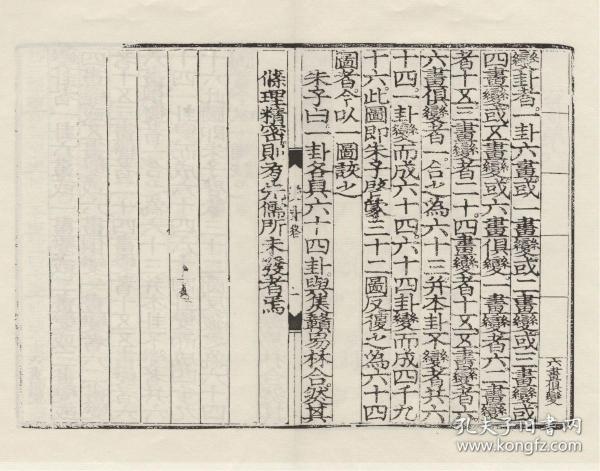 變卦者一卦六畫或一畫變或二畫變或三畫變或
四畫變或五畫變或六畫俱變一畫變者六二畫變
者十五三畫變者二十四畫變者十五五畫變者六
六畫俱變者一合之為六十三并本卦不變者共六
十四一卦變而成六十四六十四卦變而成四千九
十六此圖即朱子啓蒙三十二圖反復之為六十四
圖者今以一圖該之
朱子曰一卦各具六十四卦與焦贛易林合然其
條理精密則有先儒所未發者焉
六畫俱變
孔夫子旧书网
www.kongfz.com